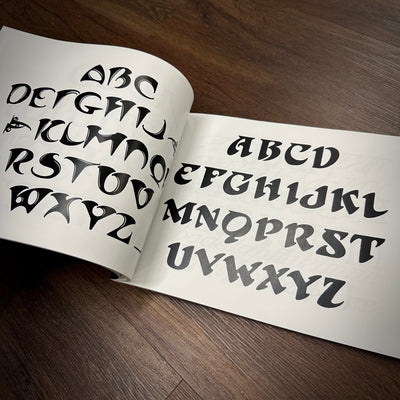 ABC
DEFGHIJ
KLMNO
RSTUV
WXYZ
ABCD
EFGHIJKL
MNOPQRST
UVWXYZ